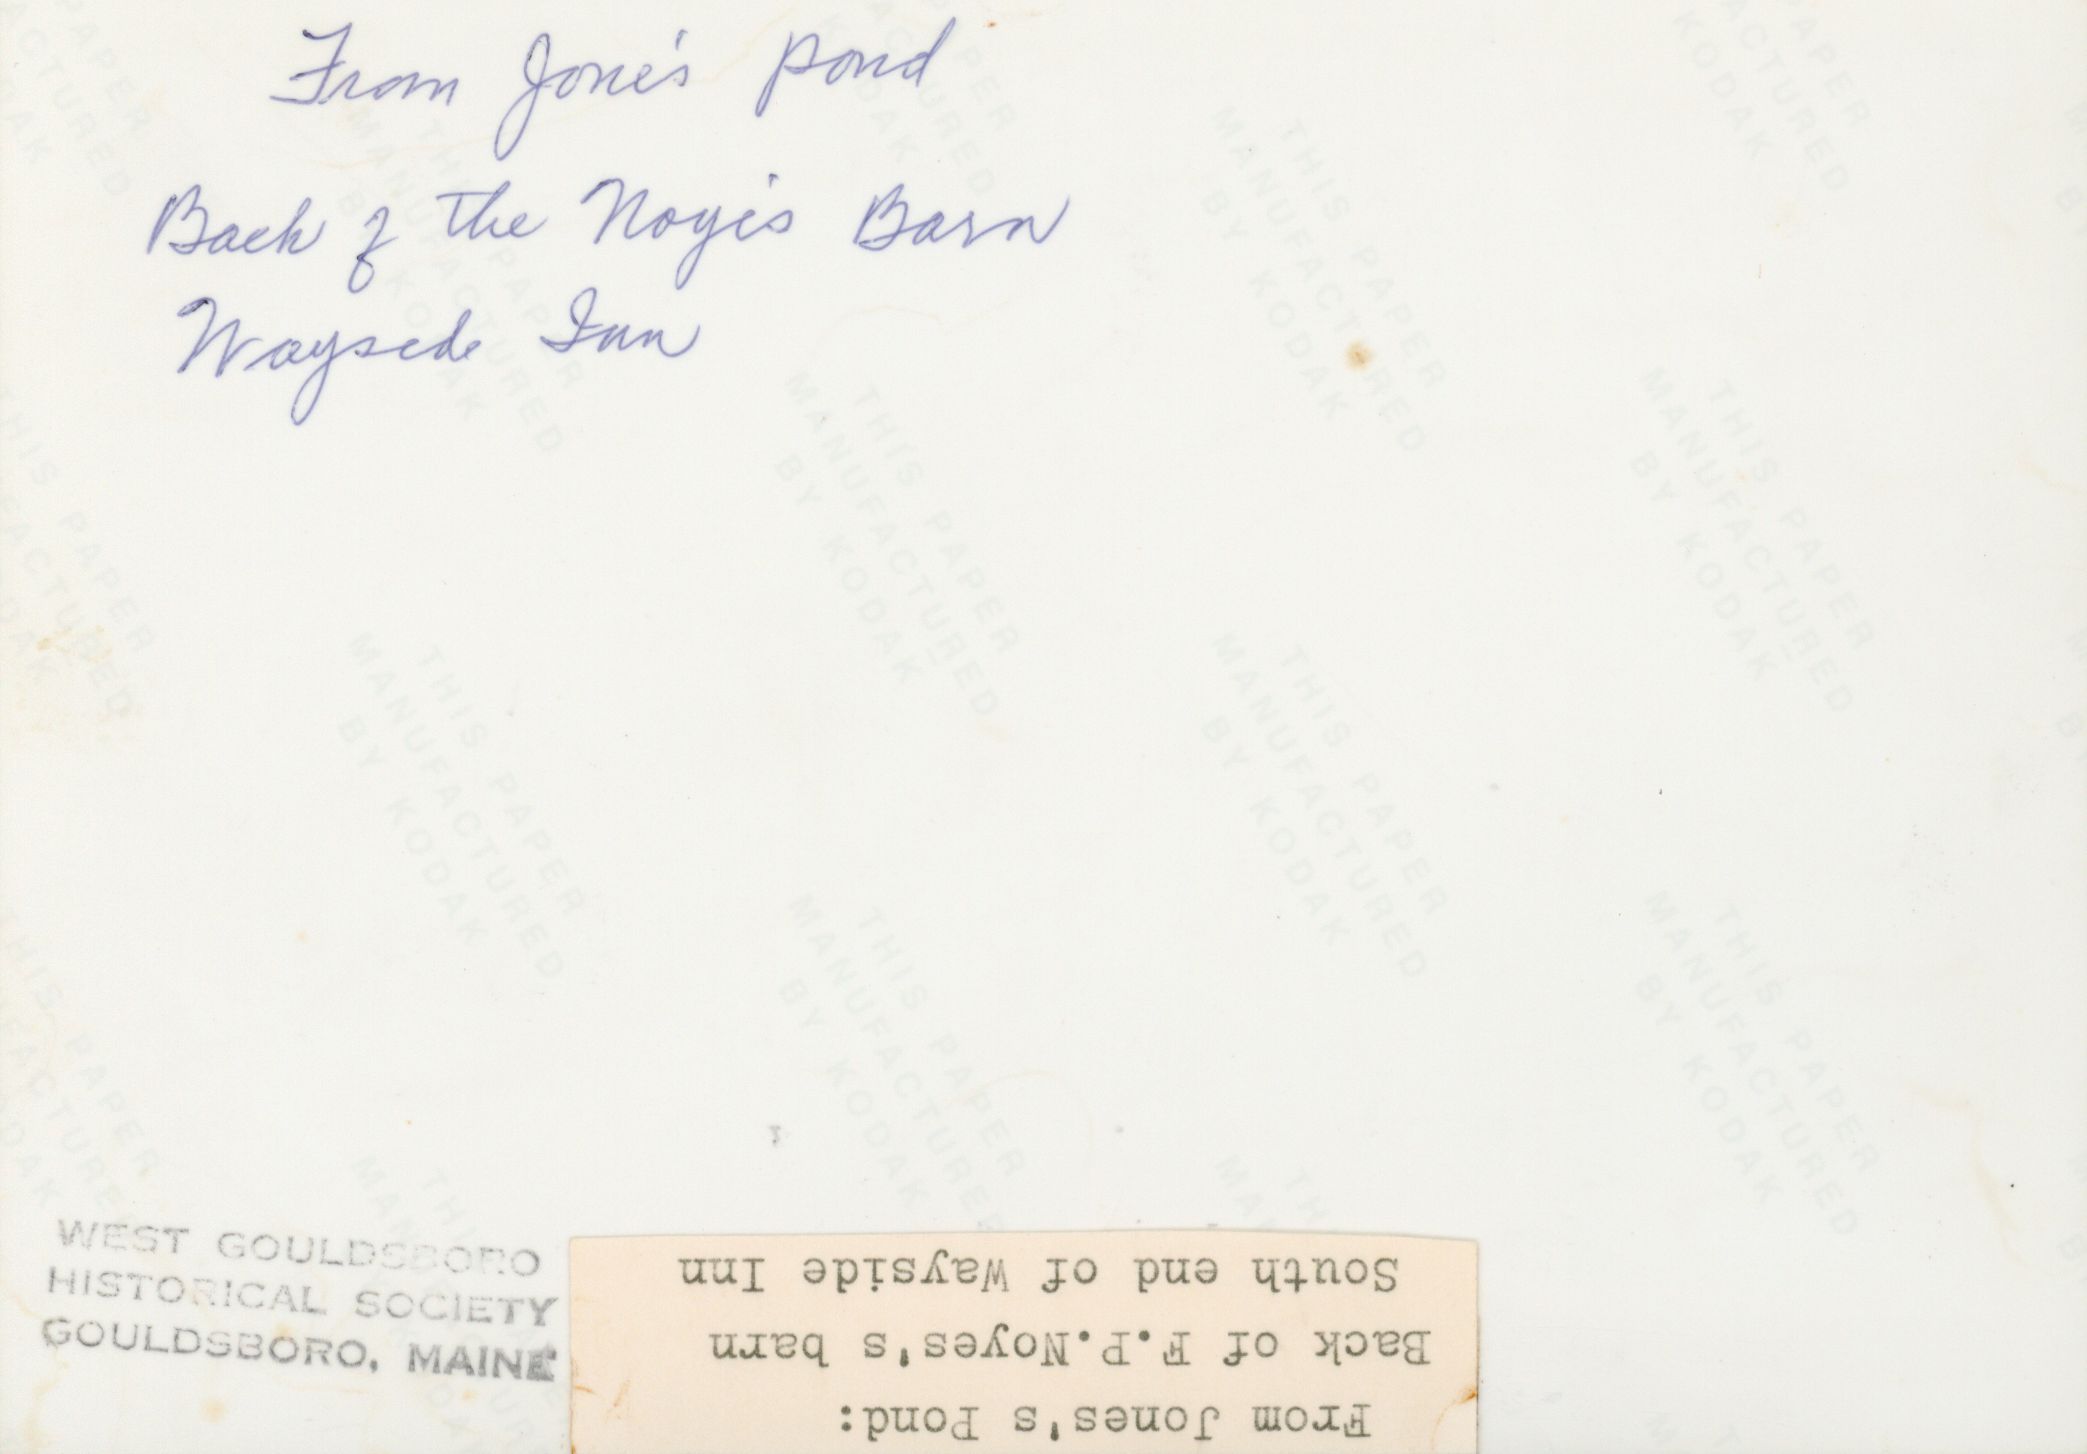 From Jone's pond
Back of the Noye's Barn
Wayside Inn
WEST GOULDSBORO
HISTORICAL SOCIETY
GOULDSBORO, MAINE
From Jones's Pond:
Back of F.P.Noyes's barn
South end of Wayside Inn
THIS PAPER
MANUFACTURED
BY KODAK